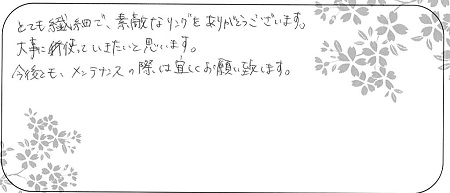 とても繊細で、素敵なリングをありがとうございます。
大事に使っていきたいと思います。
今後とも、メンテナンスの際は宜しくお願い致します。